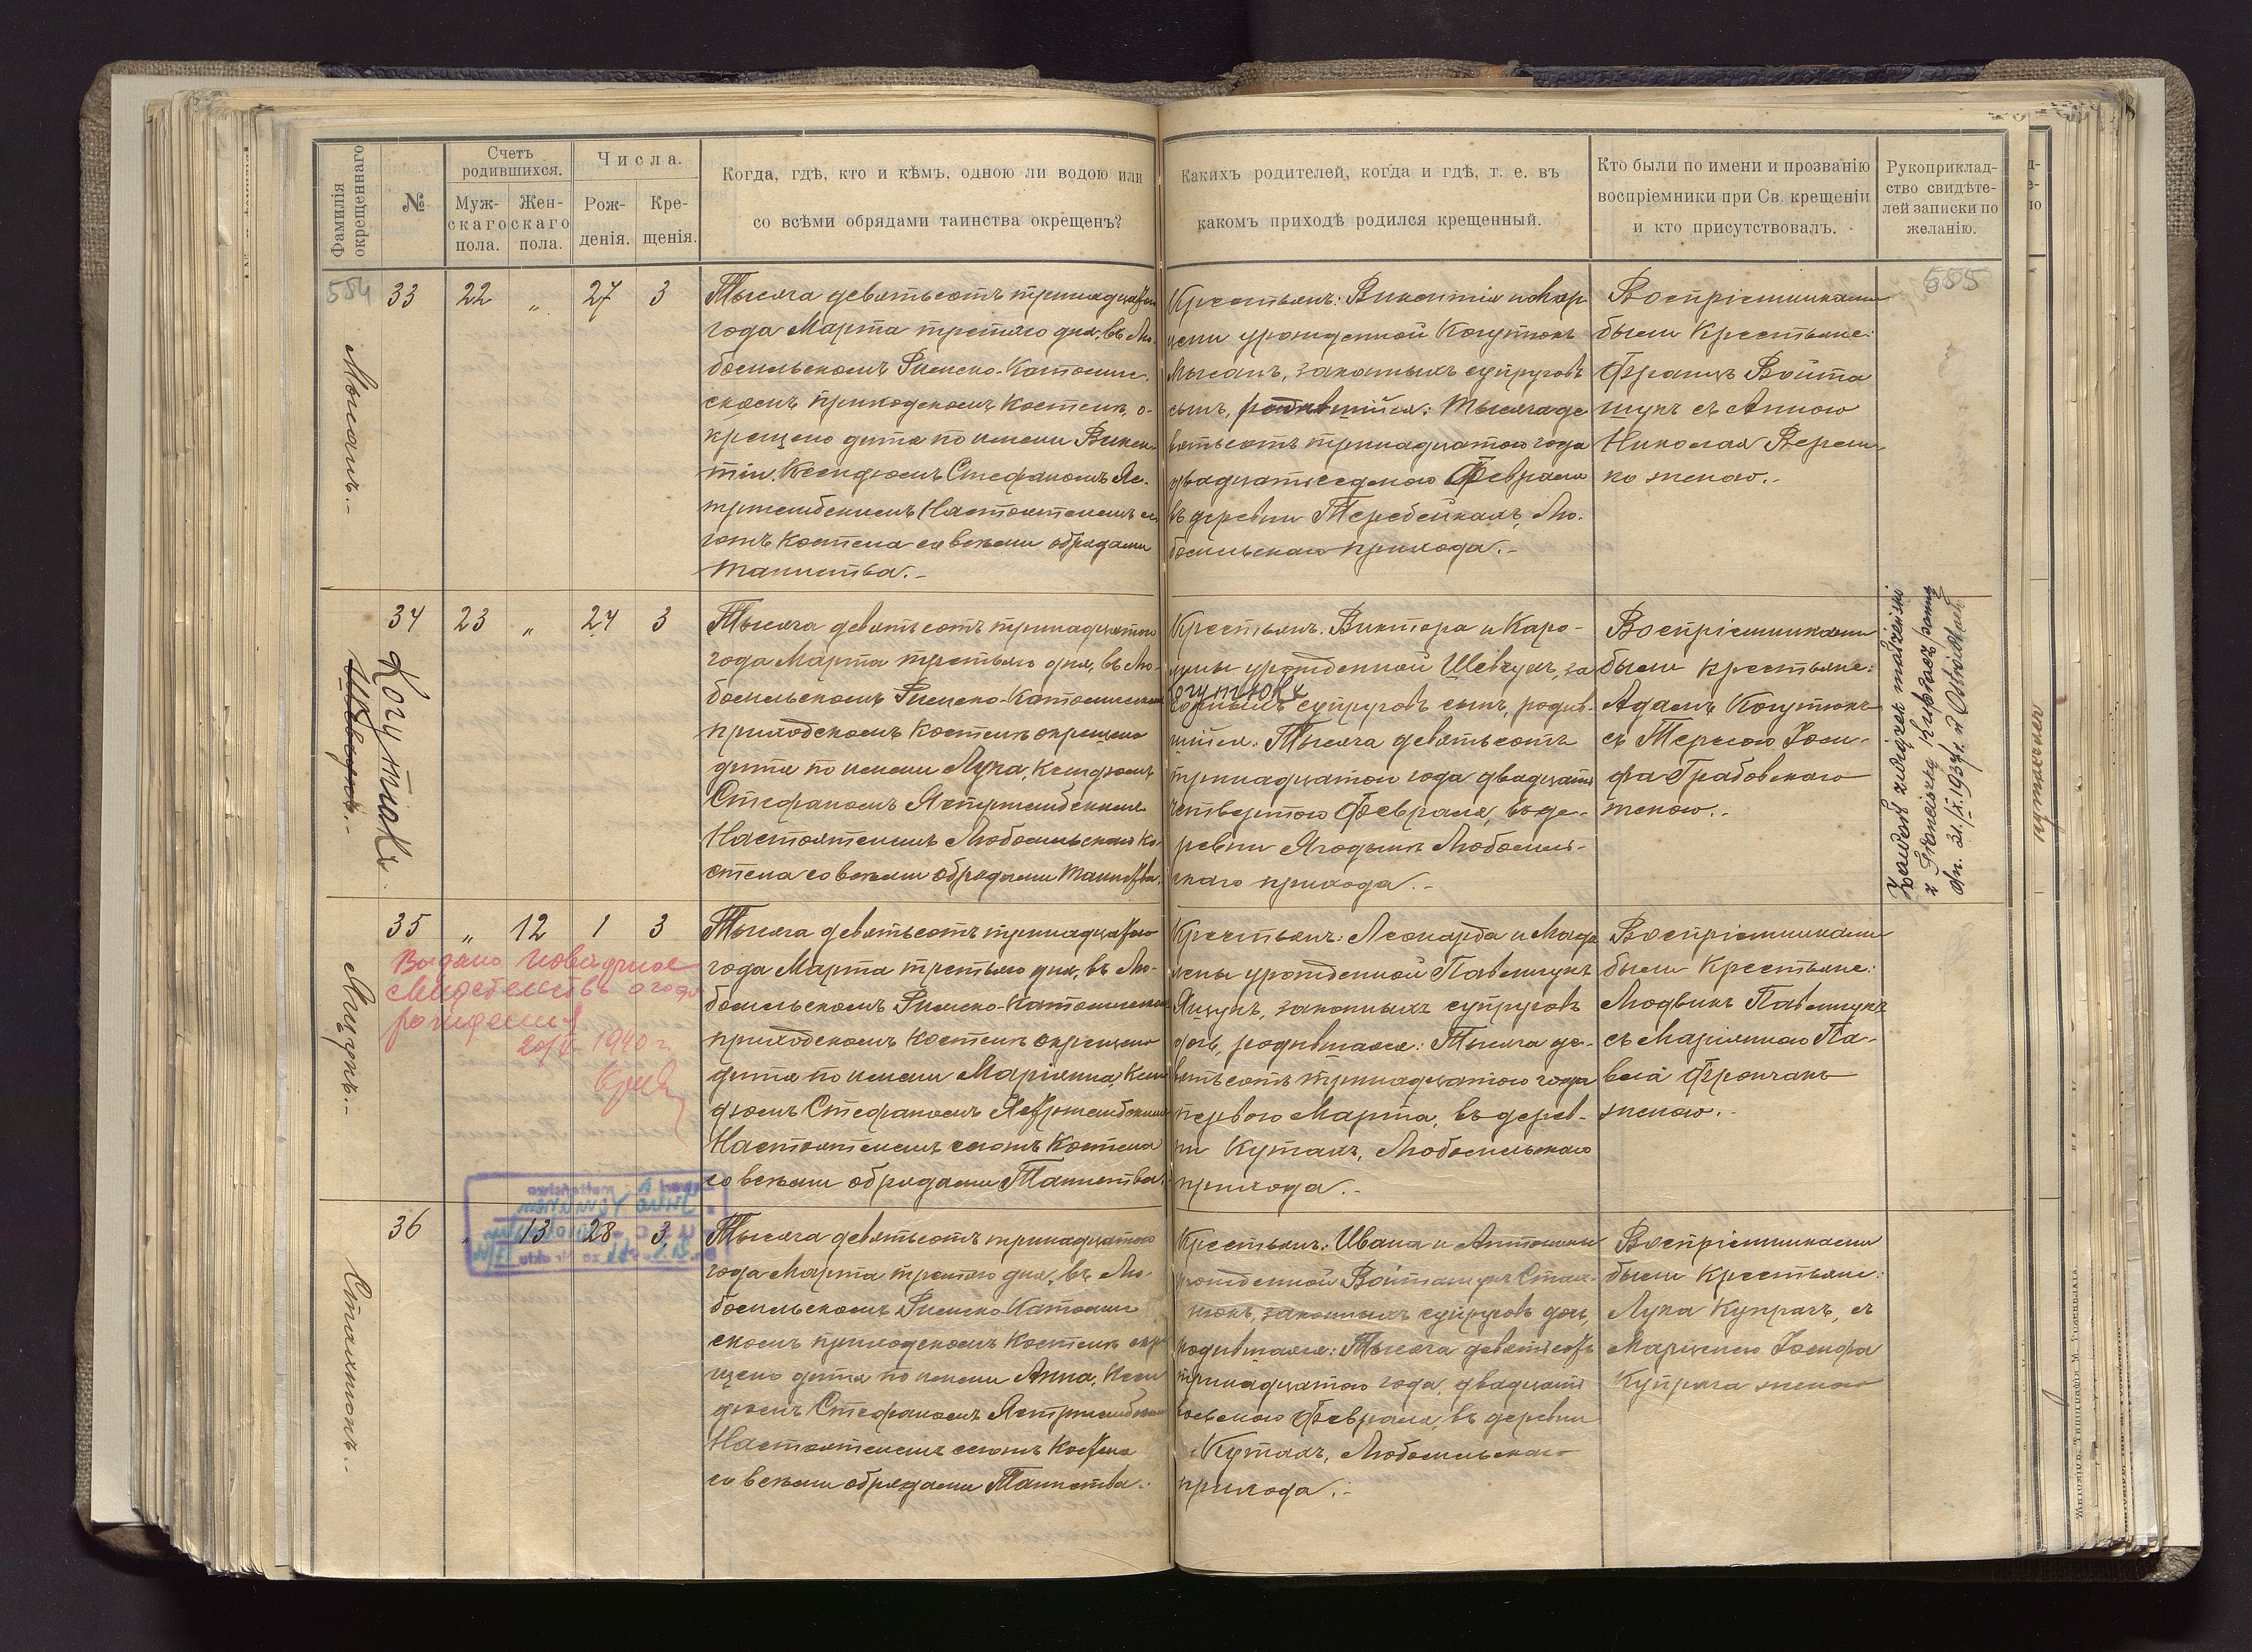 Фамилія
окрещеннаго
№
Счетъ
родившихся.
Муж-
скаго
пола.
Жен-
скаго
пола.
Числа.
Рож-
денія.
Кре-
щенія.
Когда, гдѣ, кто и кѣмъ, одною ли водою или
со всѣми обрядами таинства окрещенъ?
Какихъ родителей, когда и гдѣ, т. е. въ
какомъ приходѣ родился крещенный.
Кто были по имени и прозванію
воспріемники при Св. крещеніи
и кто присутствовалъ.
Рукоприклад-
ство свидѣте-
лей записки по
желанію.
584
585
33 22 " 27 3
Тысяча девятьсотъ тринадцатаго
года Марта третьяго дня, въ Лю-
бомльскомъ Римско-Католиче-
скомъ приходскомъ Костелѣ, о-
крещено дитя по имени Викен-
тій, Ксендзомъ Стефаномъ Яс-
тржембскимъ Настоятелемъ се-
гожъ Костела со всѣми обрядами
таинства.-
Крестьянъ: Викентія и Мар-
урожденной Когутюкъ
законныхъ супруговъ
сынъ, родившійся: Тысяча де-
вятьсотъ тринадцатаго года
двадцатьседьмаго Февраля
въ деревни Теребейкахъ, Лю-
бомльскаго прихода.-
Воспріемниками
были Крестьяне:
Францъ Войта
щукъ съ Анною
Николая Вереми-
ко женою.-
34 23 " 24 3
Когутюкъ
Тысяча девятьсотъ тринадцатаго
года Марта третьяго дня, въ Лю-
бомльскомъ Римско-Католическомъ
приходскомъ Костелѣ окрещено
дитя по имени Лука, Ксендзомъ
Стефаномъ Ястржембскимъ
Настоятелемъ Любомльскаго Ко-
стела со всѣми обрядами Таинства.
Крестьянъ: Виктора и Каро-
лины урожденной Шевчукъ, за
Когутюкъ
конныхъ супруговъ сынъ, родив-
шійся: Тысяча девятьсотъ
тринадцатаго года двадцать
четвертаго Февраля, въ де-
ревни Ягодынѣ Любомль-
скаго прихода.-
Воспріемниками
были крестьяне:
Адамъ Когутюкъ
съ Терезою Іоси-
фа Грабовскаго
женою.-
Zawarł związek małżeński
z Franciszką
dn. 21/IX.1937 r.
35 " 12 1 3
Яцукъ.-
Выдано
свидетельство о годе
рождения
1940 г.
Тысяча девятьсотъ тринадцатаго
года Марта третьяго дня, въ Лю-
бомльскомъ Римско-Католическомъ
приходскомъ Костелѣ окрещено
дитя по имени Маріянна, Ксен-
дзомъ Стефаномъ Ястржембскимъ
Настоятелемъ сегожъ Костела
со всѣми обрядами Таинства.
Крестьянъ: Леонарда и Магда
лены урожденной Павлищукъ
Яцукъ, законныхъ супруговъ
дочь, родившаяся: Тысяча де-
вятьсотъ тринадцатаго года
перваго Марта, въ дерев-
ни Кутахъ, Любомльскаго
прихода.-
Воспріемниками
были Крестьяне:
Людвикъ Павлищукъ
съ Маріянною Па-
вла Фрончакъ
женою.-
36 " 13 28 3
Стахнюкъ.-
Тысяча девятьсотъ тринадцатаго
года Марта третьяго дня, въ Лю-
бомльскомъ Римско-Католиче
скомъ приходскомъ Костелѣ окре
щено дитя по имени Анна, Ксен
дзомъ Стефаномъ Ястржембскимъ
Настоятелемъ сегожъ Костела
со всѣми обрядами Таинства.-
Крестьянъ: Ивана и Антонины
урожденной Войтащукъ Стах-
нюкъ, законныхъ супруговъ дочь,
родившаяся: Тысяча девятьсотъ
тринадцатаго года, двадцать
восьмаго Февраля, въ деревни
Кутахъ, Любомльскаго
прихода.-
Воспріемниками
были Крестьяне:
Лука Купрачъ, съ
Марцелею Іосифа
Купрача женою